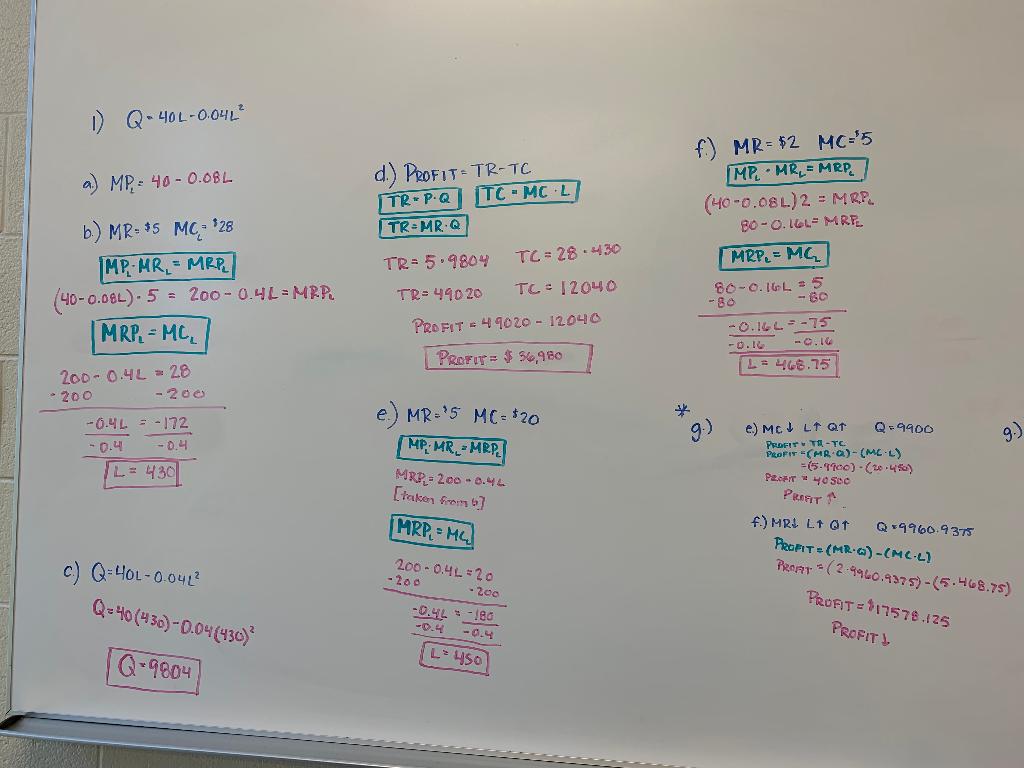 1) Q = 40L - 0.04L²
a.) MP_L = 40 - 0.08L
b.) MR = $5 MC_L = $28
MP_L · MR_L = MRP_L
(40 - 0.08L) · 5 = 200 - 0.4L = MRP_L
MRP_L = MC_L
200 - 0.4L = 28
-200 -200
-0.4L = -172
-0.4 -0.4
L = 430
c.) Q = 40L - 0.04L²
Q = 40(430) - 0.04(430)²
Q = 9804
d.) PROFIT = TR - TC
TR = P·Q TC = MC · L
TR = MR·Q
TR = 5 · 9804 TC = 28 · 430
TR = 49020 TC = 12040
PROFIT = 49020 - 12040
PROFIT = $ 36,980
e.) MR = $5 MC = $20
MP_L · MR_L = MRP_L
MRP_L = 200 - 0.4L
[taken from b]
MRP_L = MC_L
200 - 0.4L = 20
-200 -200
-0.4L = -180
-0.4 -0.4
L = 450
f.) MR = $2 MC = $5
MP_L · MR_L = MRP_L
(40 - 0.08L)2 = MRP_L
80 - 0.16L = MRP_L
MRP_L = MC_L
80 - 0.16L = 5
-80 -80
-0.16L = -75
-0.16 -0.16
L = 468.75
*
g.) e.) MC↓ L↑ Q↑ Q = 9900
PROFIT = TR - TC
PROFIT = (MR·Q) - (MC·L)
= (5·9900) - (20·450)
PROFIT = 40500
PROFIT ↑
f.) MR↓ L↑ Q↑ Q = 9960.9375
PROFIT = (MR·Q) - (MC·L)
PROFIT = (2·9960.9375) - (5·468.75)
PROFIT = $17578.125
PROFIT ↓
g.)